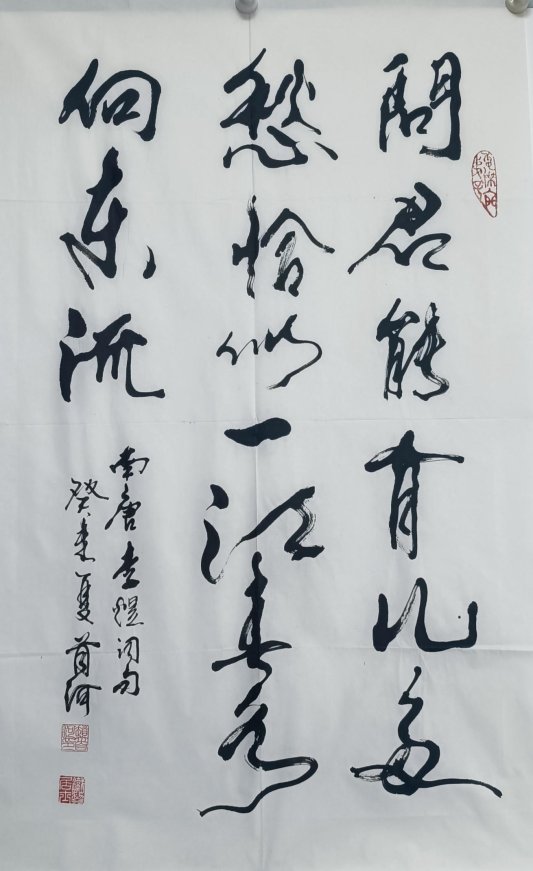 問君能有几多
愁恰似一江春水
向東流
南唐李煜词句
癸未夏